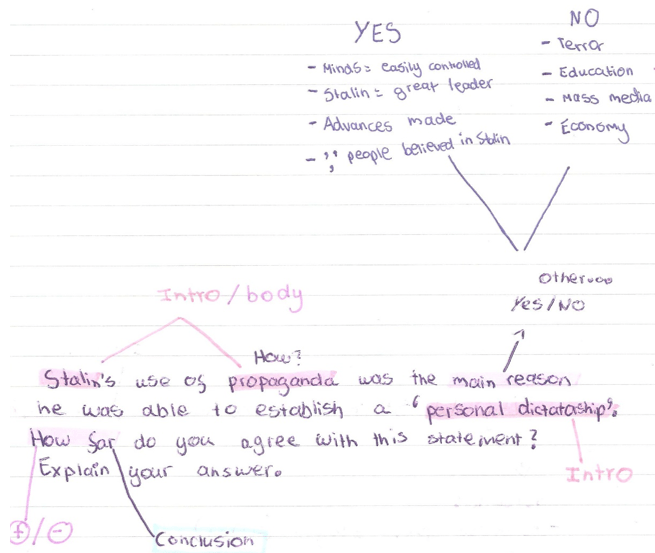 YES
- Minds = easily controlled
- Stalin = great leader
- Advances made
- ,, people believed in Stalin
NO
- Terror
- Education
- Mass media
- Economy
Yes/No
Intro/body
How?
Stalin's use of propaganda was the main reason
he was able to establish a 'personal dictataship'.
How far do you agree with this statement?
Explain your answer.
Intro
+/-
Conclusion